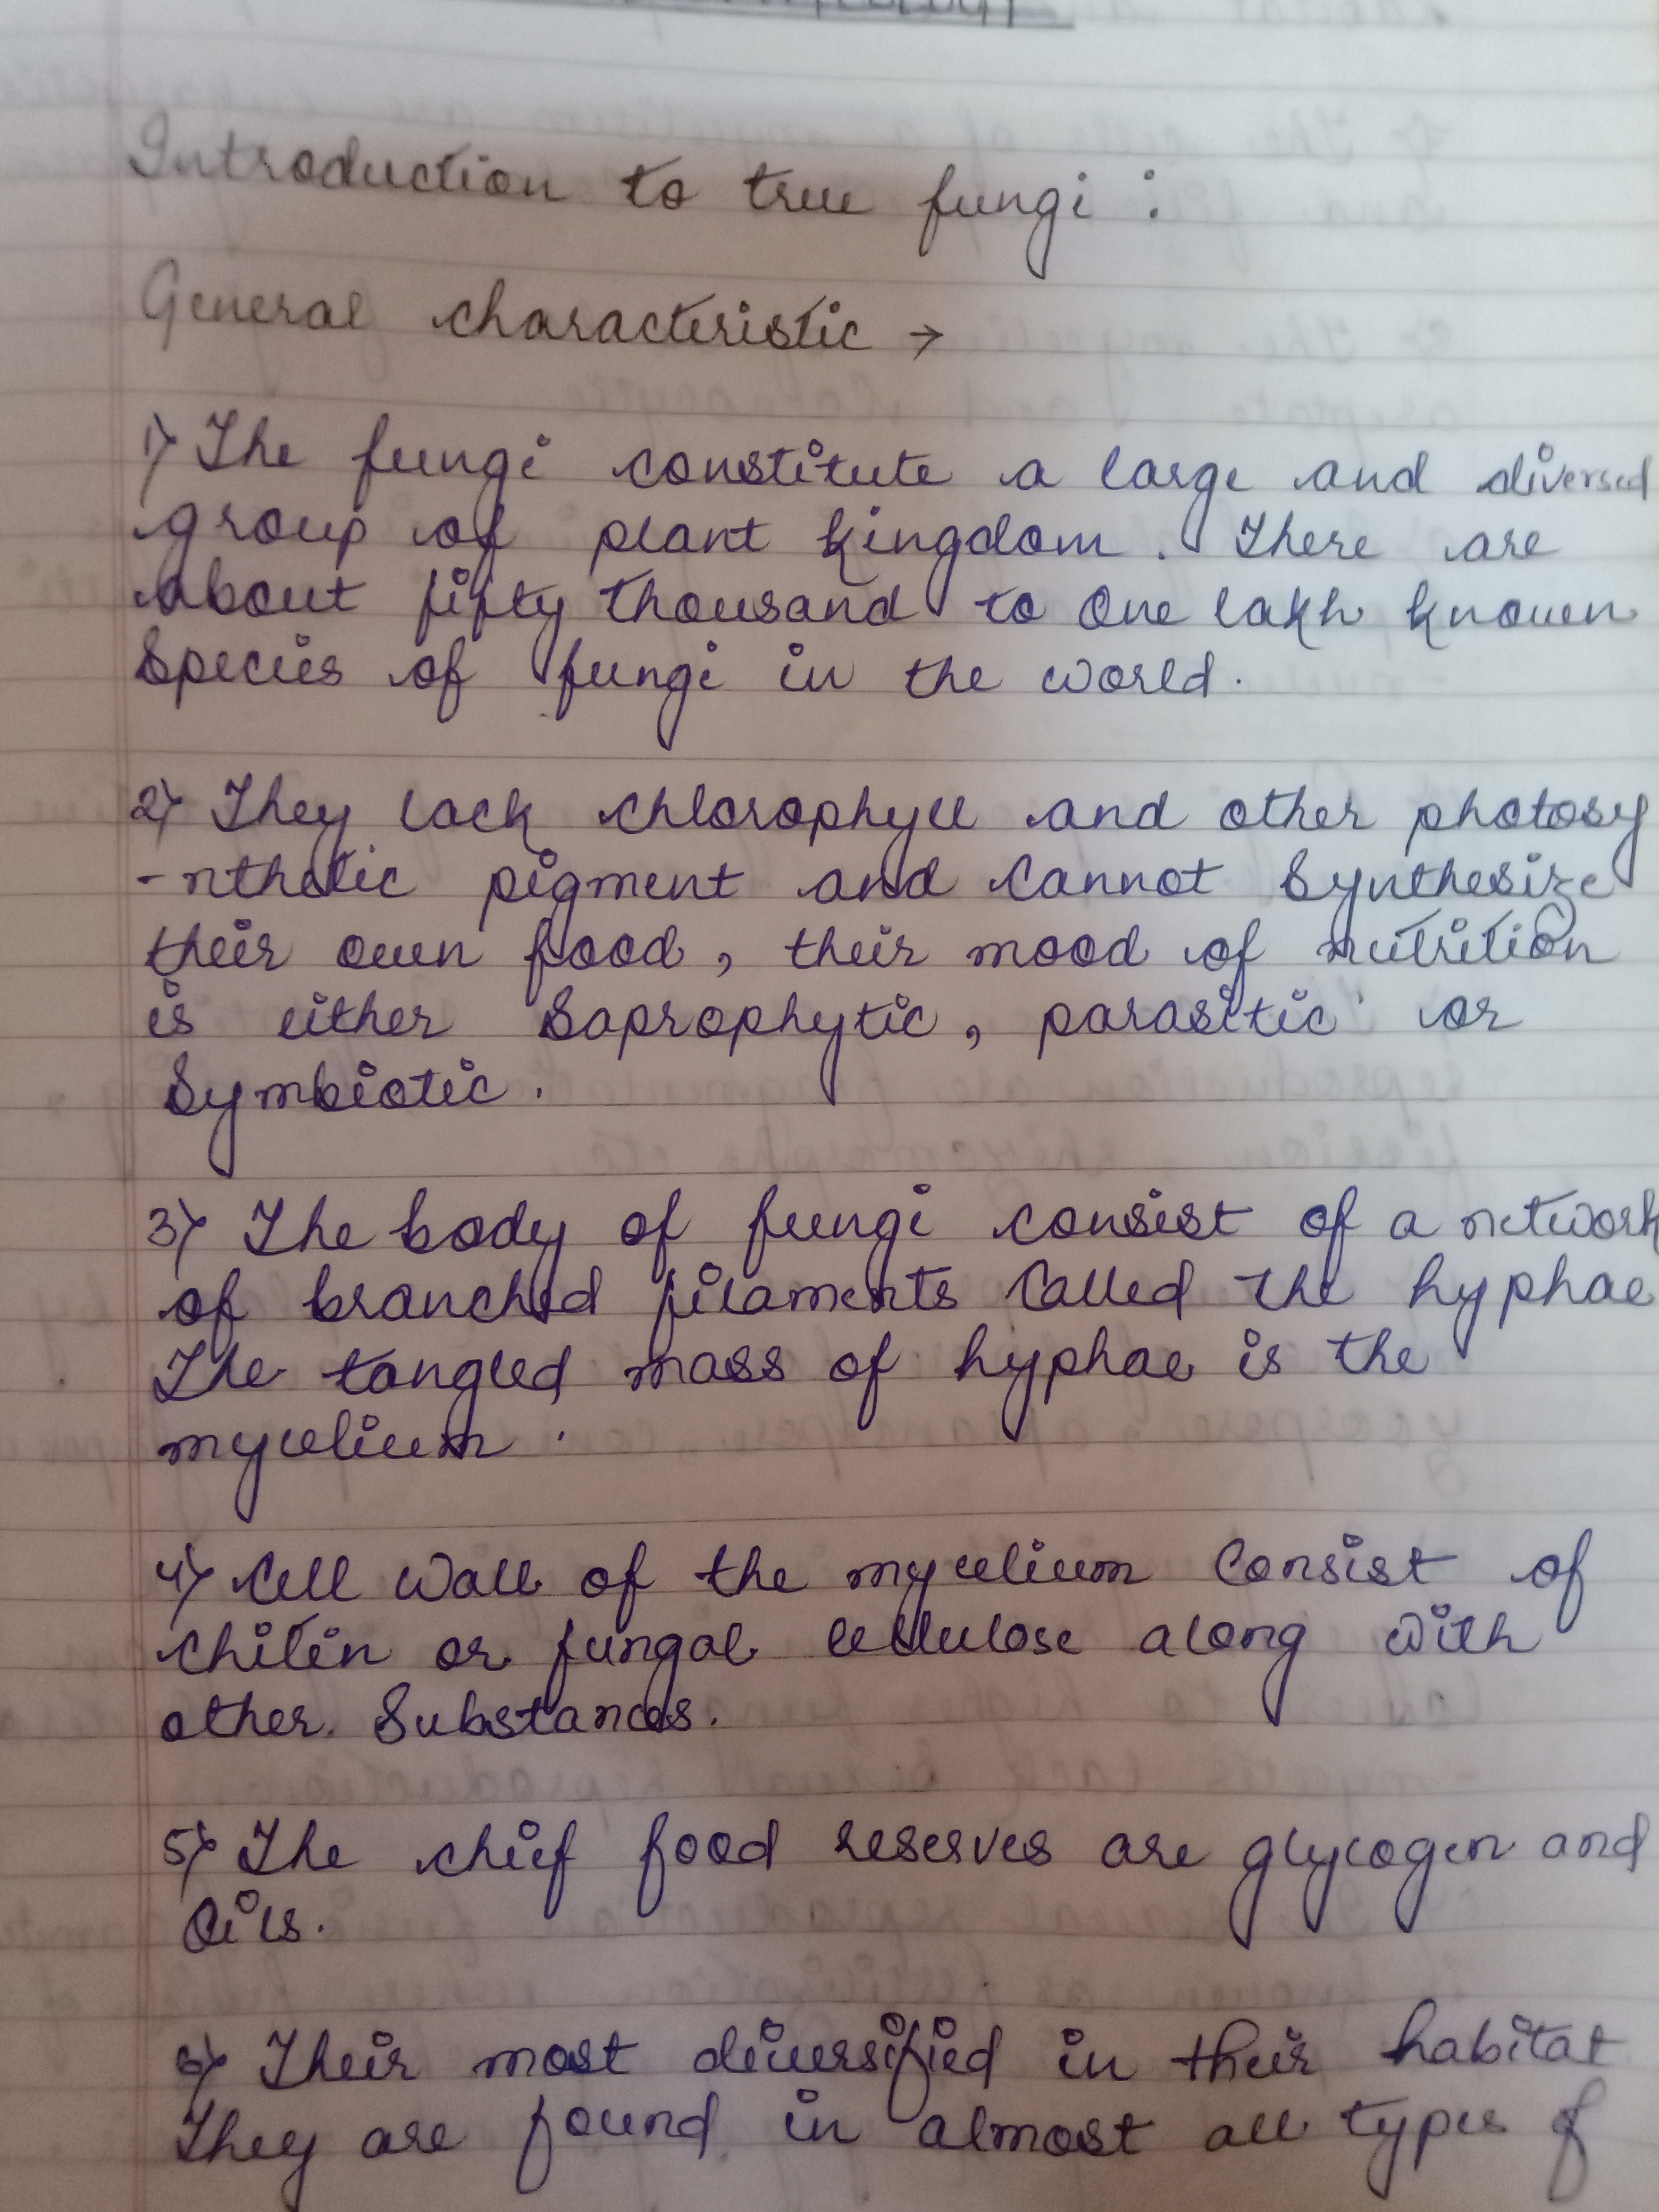 Introduction to true fungi :
General characteristic →
1) The fungi constitute a large and diversed
group of plant kingdom. There are
about fifty thousand to One lakh known
Species of fungi in the world.
2) They lack chlorophyll and other photosy
-nthetic pigment and cannot Synthesize
their own food, their mood of nutrition
is either Saprophytic, parasitic or
Symbiotic.
3) The body of fungi consist of a network
of branched filaments Called the hyphae
The tangled mass of hyphae is the
mycelium.
4) Cell Wall of the mycelium Consist of
chitin or fungal cellulose along with
other. Substances.
5) The chief food reserves are glycogen and
Oils.
6) Their most diversified in their habitat
They are found in almost all types of